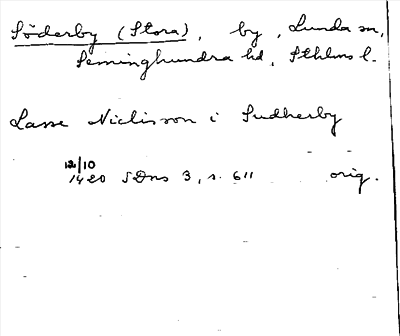 Söderby (Stora), by, Lunda sn,
Seminghundra hd, Sthlms l.
Lasse Niclisson i Sudherby
12/10
1420 SDns 3, s. 611 orig.